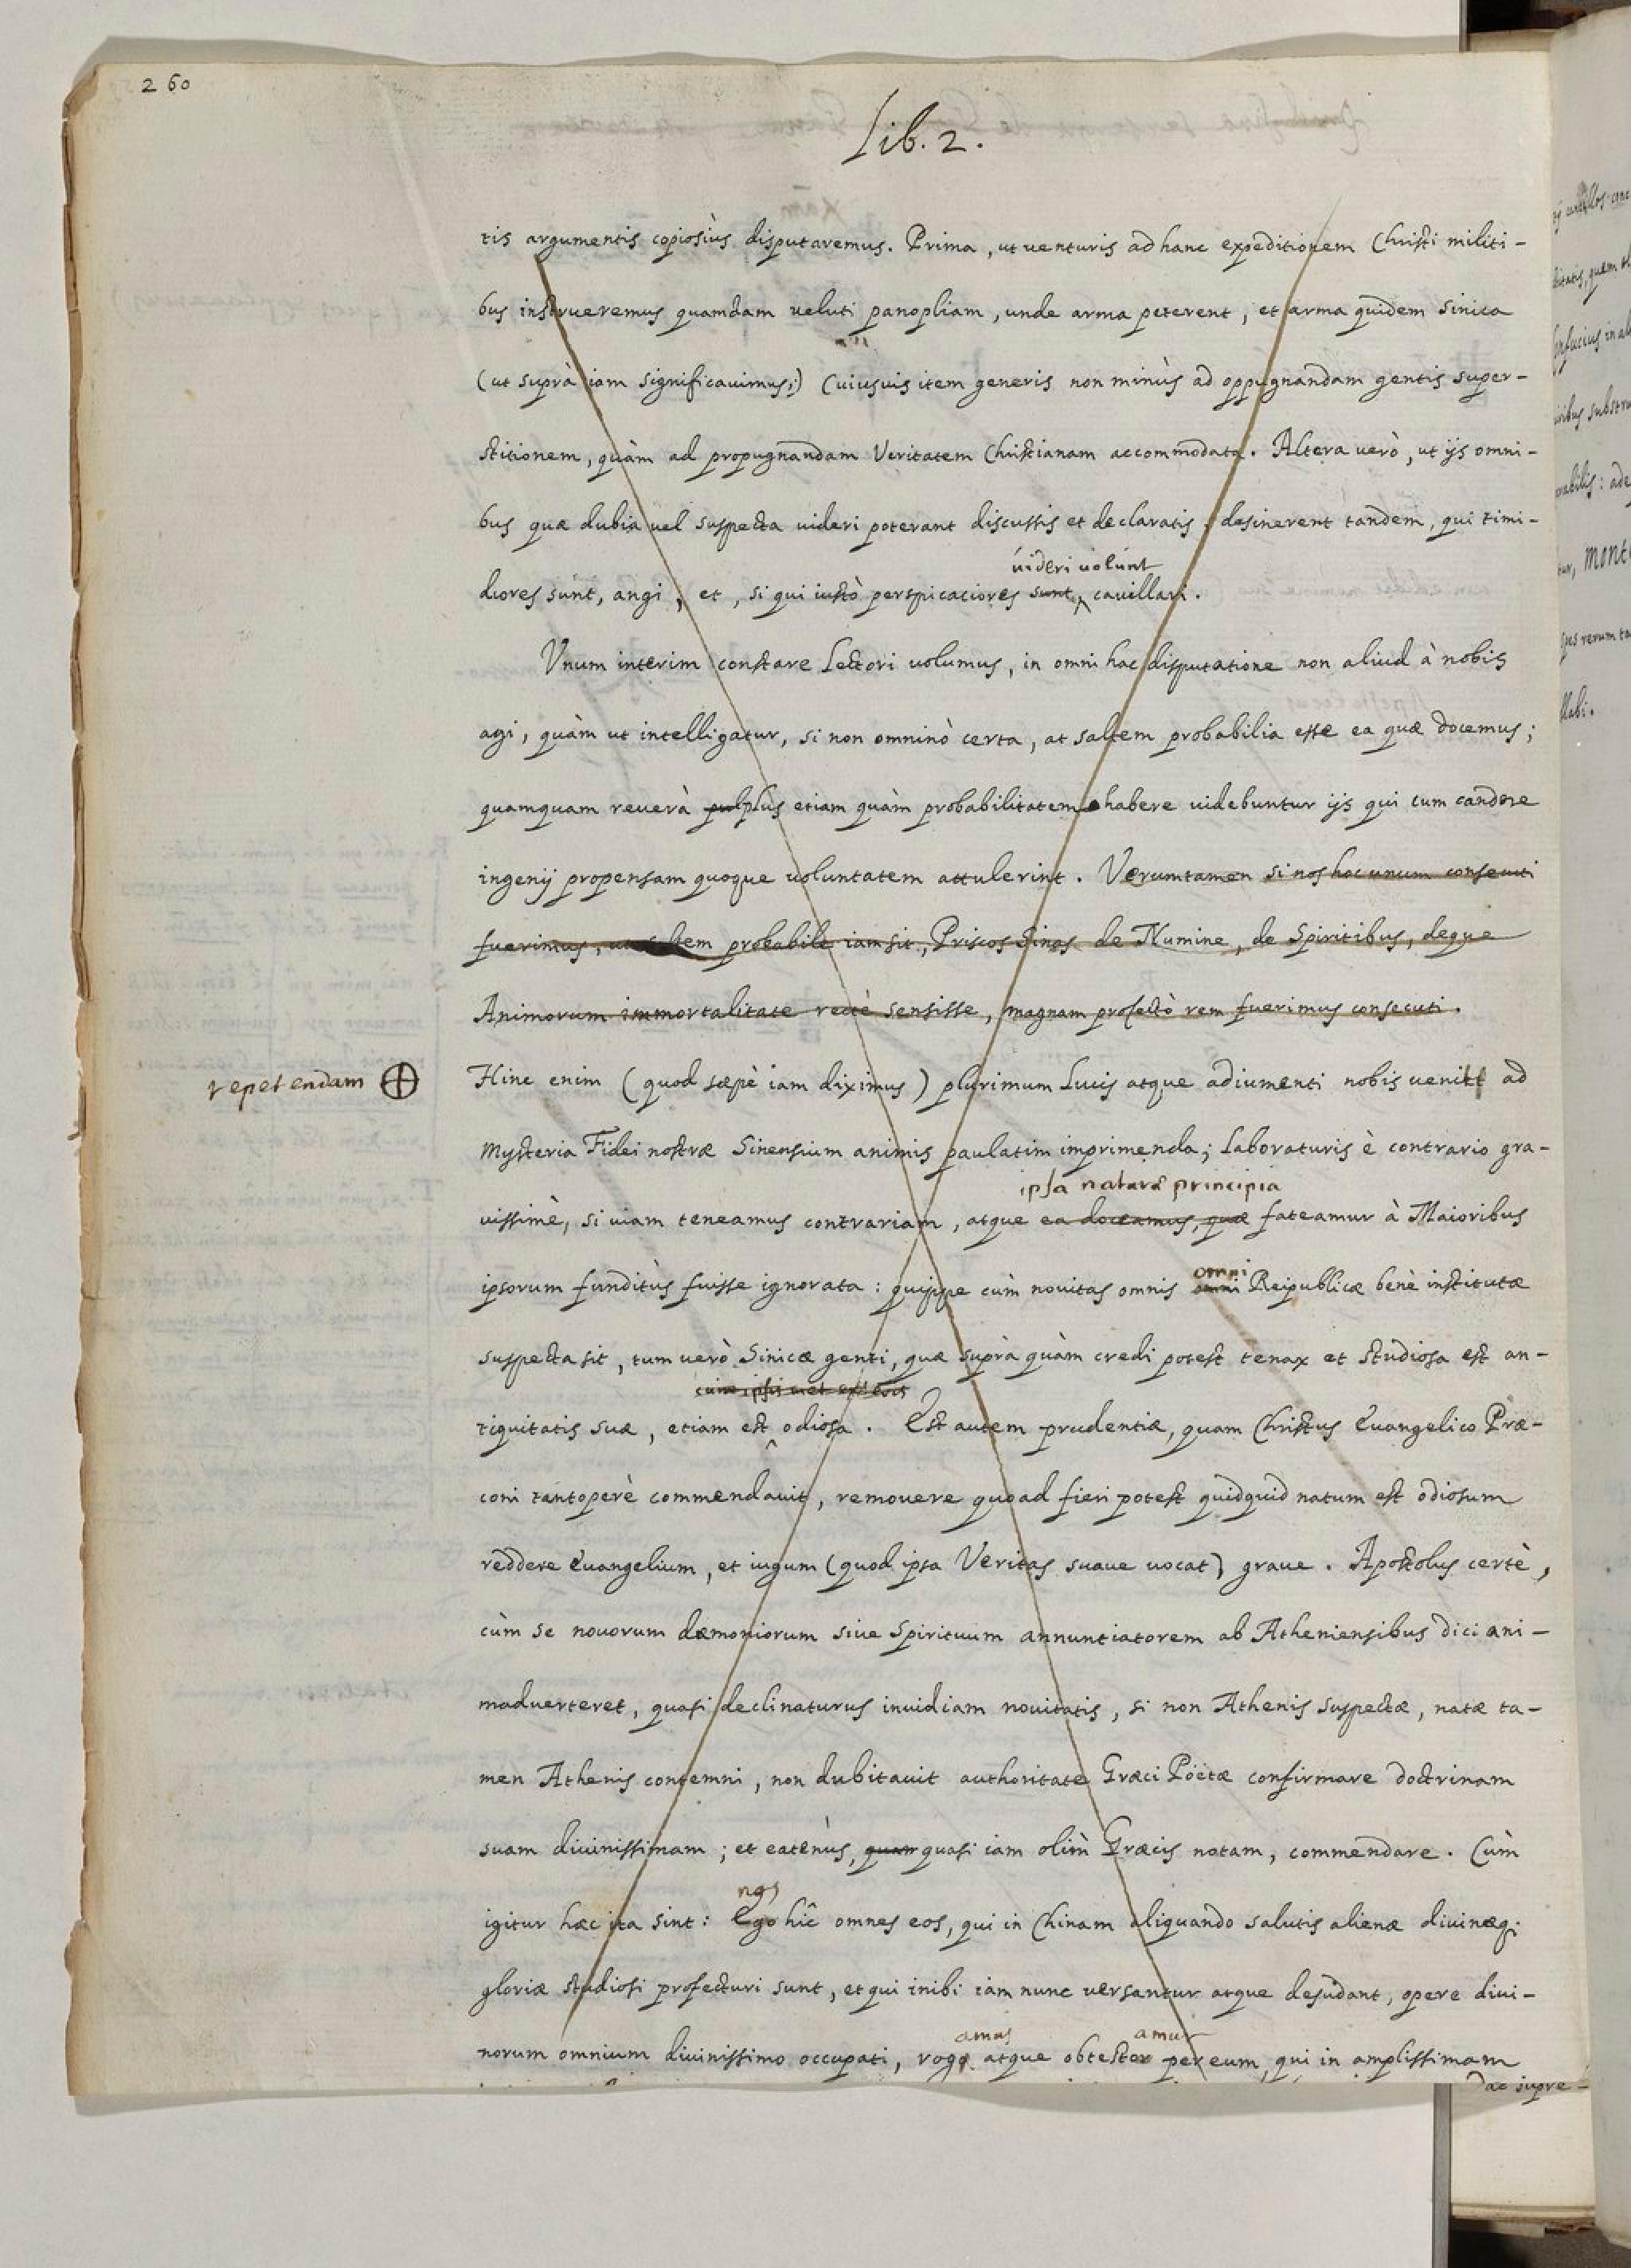 260
Lib. 2.
tis argumentis copiosiùs disputaremus. Prima, ut venturis ad hanc expeditionem Christi militi-
bus instrueremus quamdam veluti panopliam, unde arma peterent, et arma quidem Sinica
(ut suprà iam significavimus;) cuiusvis item generis non minùs ad oppugnandam gentis super-
stitionem, quàm ad propugnandam Veritatem Christianam accommodata. Altera verò, ut ijs omni-
bus quæ dubia vel suspecta videri poterant discussis et declaratis, desinerent tandem, qui timi-
videri volunt
diores sunt, angi, et, si qui iustò perspicaciores sunt, cavillari.
Vnum interim constare Lectori volumus, in omni hac disputatione non aliud à nobis
agi, quàm ut intelligatur, si non omninò certa, at saltem probabilia esse ea quæ docemus;
quamquam reverà pul plùs etiam quàm probabilitatem habere videbuntur ijs qui cum candore
ingenij propensam quoque voluntatem attulerint. Verumtamen si nos hoc unum consecuti
fuerimus, ut saltem probabile iam sit, Priscos Sinas de Numine, de Spiritibus, deque
Animorum immortalitate rectè sensisse, magnam profectò rem fuerimus consecuti.
repetendam ⊕
Hinc enim (quod sæpè iam diximus) plurimum Lucis atque adiumenti nobis venit ad
mysteria Fidei nostræ Sinensium animis paulatim imprimenda; laboraturis è contrario gra-
ipsa naturæ principia
vissimè, si viam teneamus contrariam, atque ea doceamus, quæ fateamur à Maioribus
omni
ipsorum funditùs fuisse ignorata: quippe cùm novitas omnis omni Reipublicæ benè institutæ
suspecta sit, tum verò Sinicæ genti, quæ suprà quàm credi potest tenax et studiosa est an-
tiquitatis suæ, etiam est odiosa. Est autem prudentiæ, quam Christus Evangelico Præ-
coni tantoperè commendavit, removere quoad fieri potest quidquid natum est odiosum
reddere Evangelium, et iugum (quod ipsa Veritas suave vocat) grave. Apostolus certè,
cùm se novorum dæmoniorum sive Spirituum annuntiatorem ab Atheniensibus dici ani-
madverteret, quasi declinaturus invidiam novitatis, si non Athenis suspectæ, natæ ta-
men Athenis contemni, non dubitavit authoritate Græci Poëtæ confirmare doctrinam
suam divinissimam; et eatenùs, quam quasi iam olim Græcis notam, commendare. Cùm
nos
igitur hæc ita sint: Ego hîc omnes eos, qui in Chinam aliquando salutis alienæ divinæq;
gloriæ studiosi profecturi sunt, et qui inibi iam nunc versantur atque desudant, opere divi-
amus amur
norum omnium divinissimo occupati, rogo atque obtestor per eum, qui in amplissimam